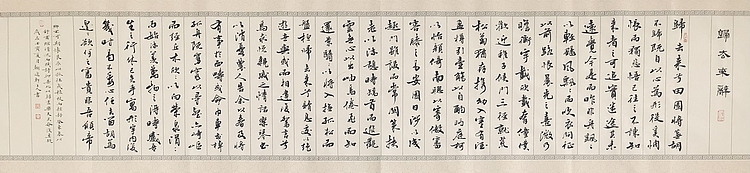 歸去來辭
歸去來兮田園將蕪胡
不歸既自以心為形役奚惆
悵而獨悲悟已往之不諫知
來者之可追實迷途其未
遠覺今是而昨非舟遙遙
以輕颺風飄飄而吹衣問征夫
以前路恨晨光之熹微乃
瞻衡宇載欣載奔僮僕
歡迎稚子候門三徑就荒
松菊猶存攜幼入室有酒
盈樽引壺觴以自酌眄庭柯
以怡顏倚南窗以寄傲審
容膝之易安園日涉以成
趣門雖設而常關策扶
老以流憩時矯首而遐觀
雲無心以出岫鳥倦飛而知
還景翳翳以將入撫孤松而
盤桓歸去來兮請息交以絕
遊世與我而相違復駕言兮
焉求悅親戚之情話樂琴書
以消憂農人告余以春及將
有事於西疇或命巾車或棹
孤舟既窈窕以尋壑亦崎嶇
而經丘木欣欣以向榮泉涓涓
而始流羨萬物之得時感吾
生之行休已矣乎寓形宇內復
幾時曷不委心任去留胡為
遑遑欲何之富貴非吾願帝